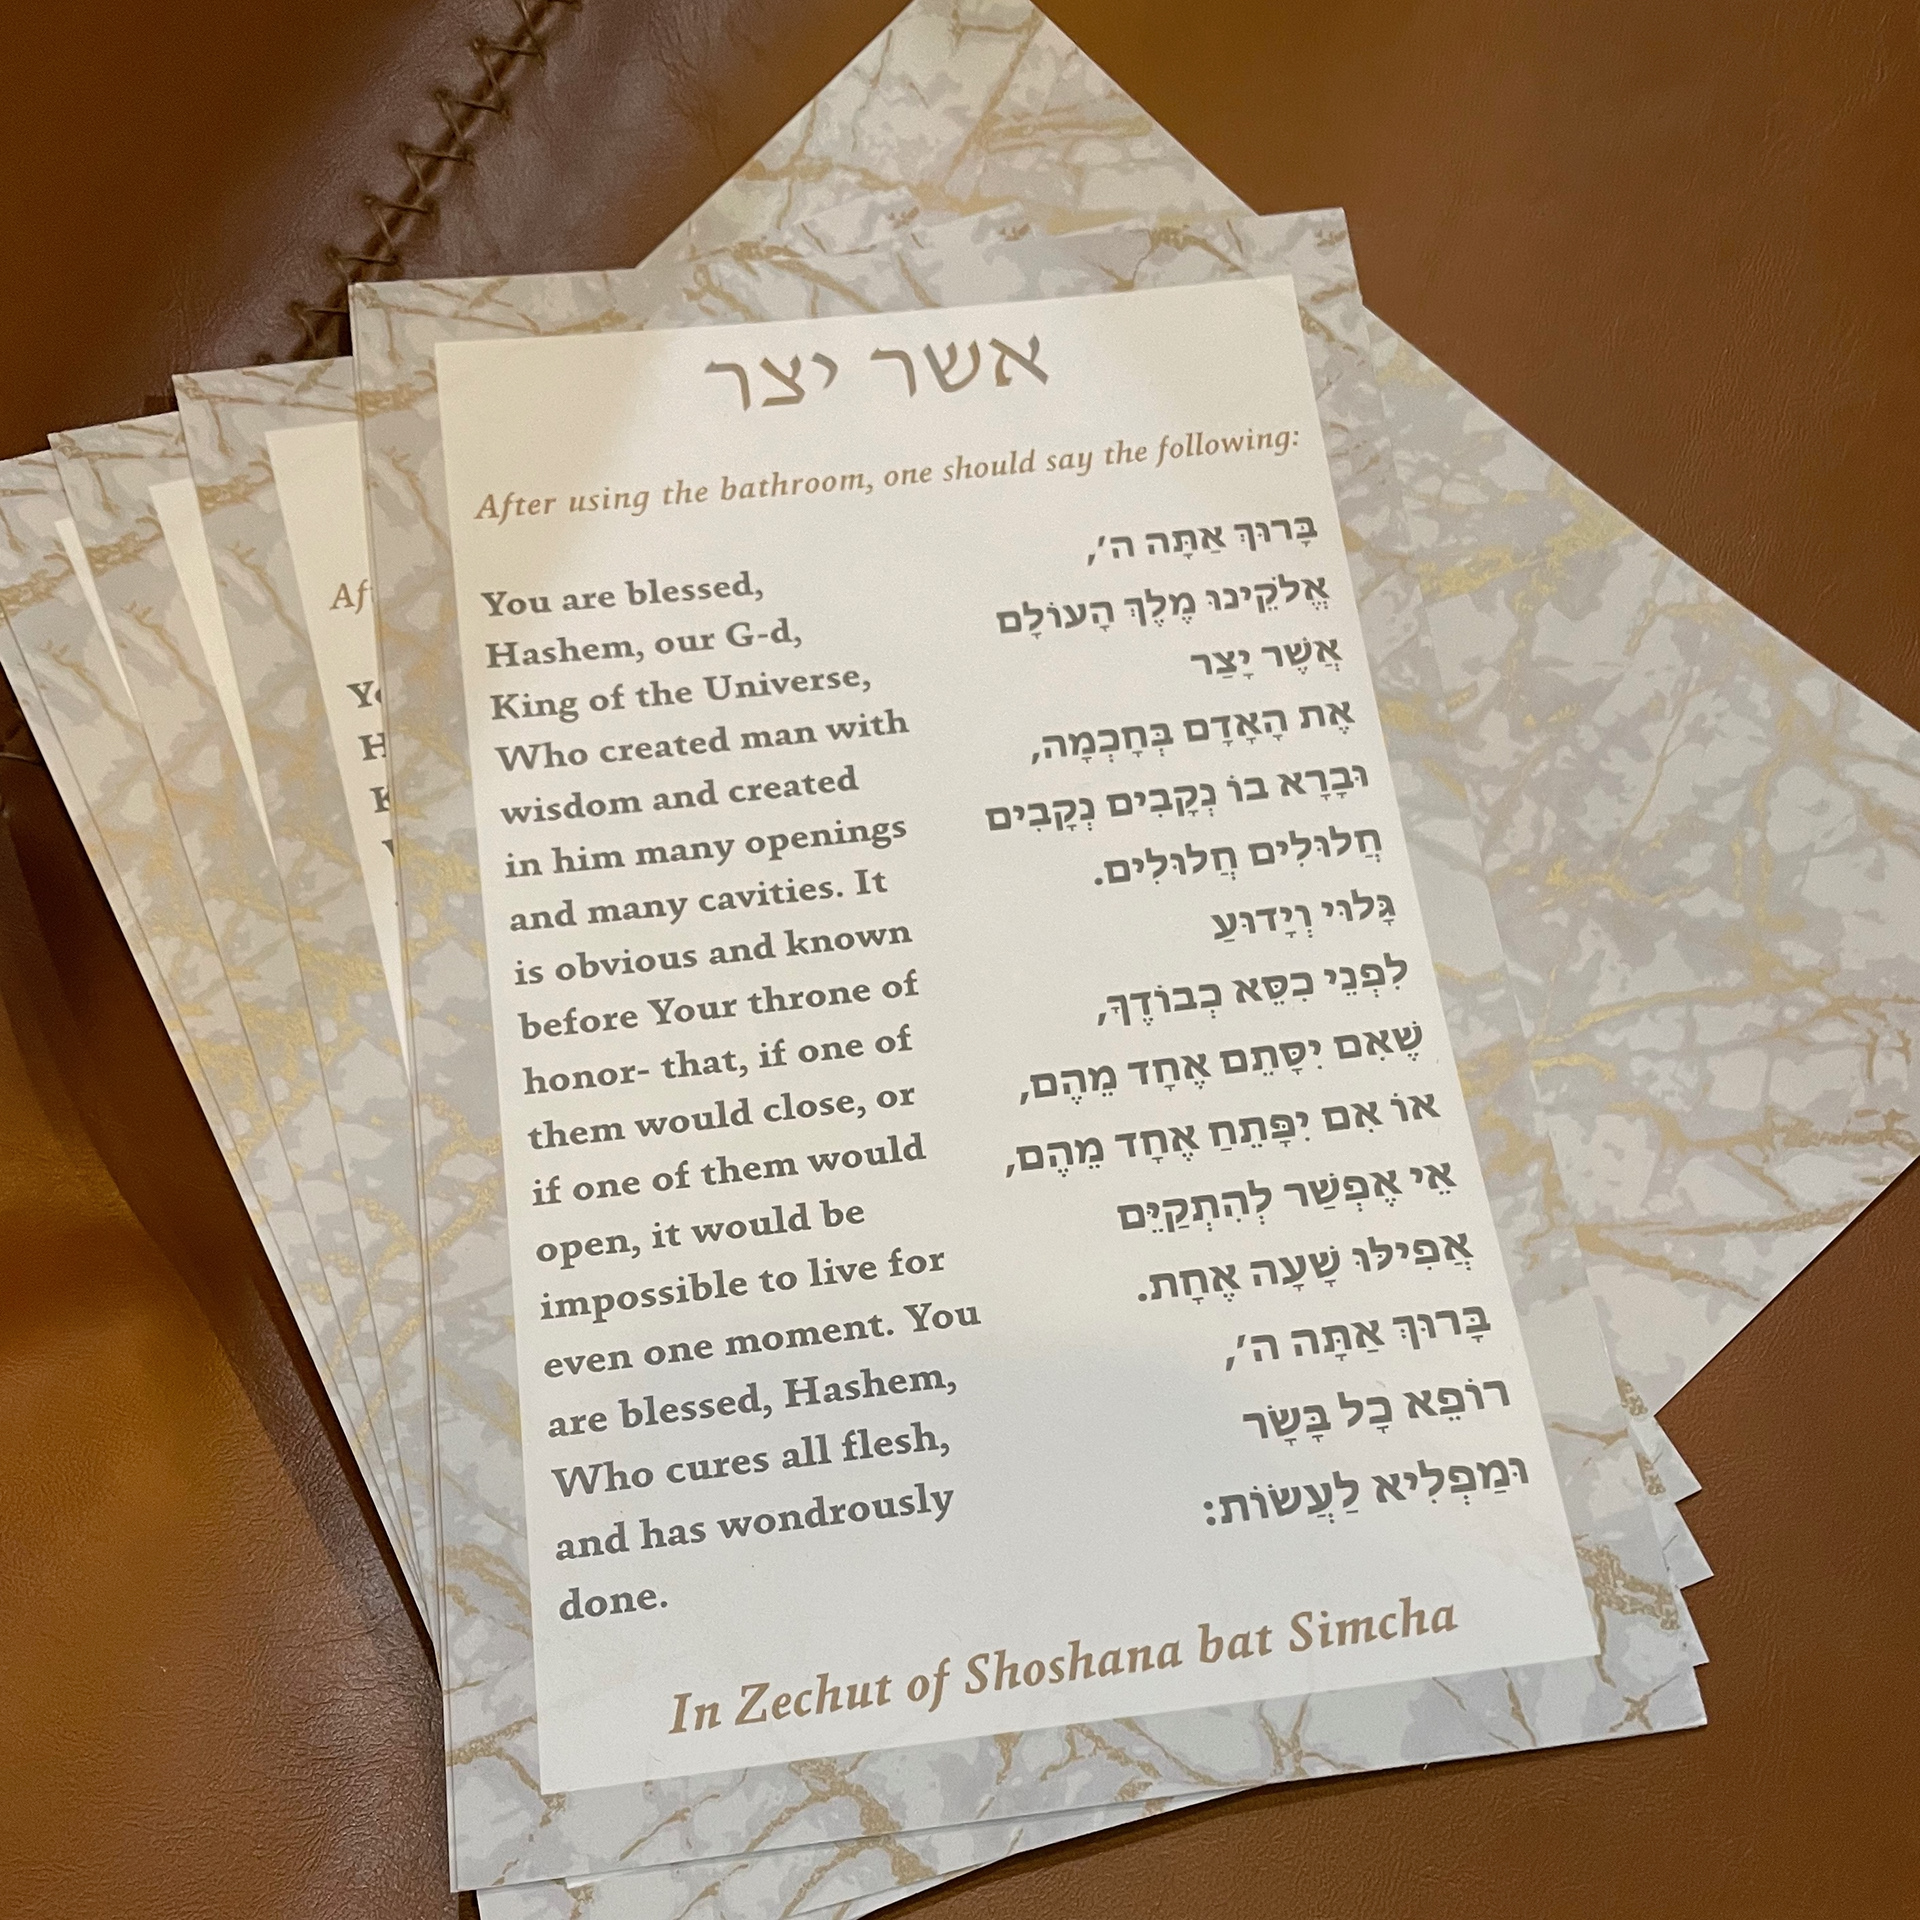 אשר יצר
After using the bathroom, one should say the following:
You are blessed,
Hashem, our G-d,
King of the Universe,
Who created man with
wisdom and created
in him many openings
and many cavities. It
is obvious and known
before Your throne of
honor- that, if one of
them would close, or
if one of them would
open, it would be
impossible to live for
even one moment. You
are blessed, Hashem,
Who cures all flesh,
and has wondrously
done.
בָּרוּךְ אַתָּה ה׳,
אֱלֹקֵינוּ מֶלֶךְ הָעוֹלָם
אֲשֶׁר יָצַר
אֶת הָאָדָם בְּחָכְמָה,
וּבָרָא בוֹ נְקָבִים נְקָבִים
חֲלוּלִים חֲלוּלִים.
גָּלוּי וְיָדוּעַ
לִפְנֵי כִסֵּא כְבוֹדֶךָ,
שֶׁאִם יִסָּתֵם אֶחָד מֵהֶם,
אוֹ אִם יִפָּתֵחַ אֶחָד מֵהֶם,
אֵי אֶפְשַׁר לְהִתְקַיֵּם
אֲפִילּוּ שָׁעָה אֶחָת.
בָּרוּךְ אַתָּה ה׳,
רוֹפֵא כָל בָּשָׂר
וּמַפְלִיא לַעֲשׂוֹת:
In Zechut of Shoshana bat Simcha